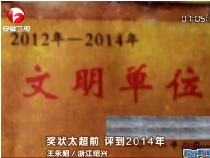 安徽卫视
01:05
2012年—2014年
文明单位
奖状太超前 评到2014年
王永昭/浙江绍兴